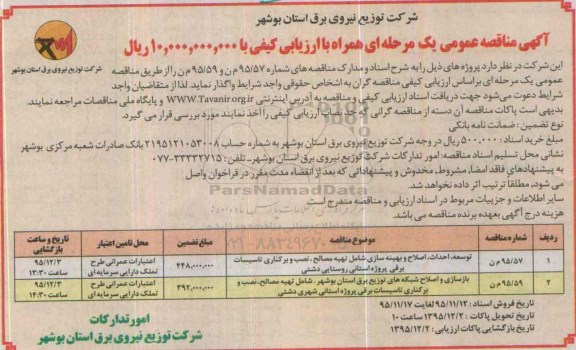 شرکت توزیع نیروی برق استان بوشهر
آگهی مناقصه عمومی یک مرحله ای همراه با ارزیابی کیفی با ۱۰,۰۰۰,۰۰۰,۰۰۰ ریال
شرکت توزیع نیروی برق استان بوشهر
این شرکت در نظر دارد پروژه های ذیل را به شرح اسناد و مدارک مناقصه های شماره ۹۵/۵۷ م ن و ۹۵/۵۹ م ن را از طریق مناقصه
عمومی یک مرحله ای براساس ارزیابی کیفی مناقصه گران به اشخاص حقوقی واجد شرایط واگذار نماید. لذا از متقاضیان واجد
شرایط دعوت می‌شود جهت دریافت اسناد ارزیابی کیفی و مناقصه به آدرس اینترنتی WWW.Tavanir.org.ir و پایگاه ملی مناقصات مراجعه نمایند.
بدیهی است پاکات مناقصه آن دسته از مناقصه گرانی که حد نصاب ارزیابی کیفی را أخذ نمایند مورد بررسی قرار می گیرد.
نوع تضمین : ضمانت نامه بانکی
مبلغ خرید اسناد : ۵۰۰,۰۰۰ ریال در وجه شرکت توزیع نیروی برق استان بوشهر به شماره حساب ۲۱۹۵۱۲۱۰۵۳۰۰۸ بانک صادرات شعبه مرکزی بوشهر
نشانی محل تسلیم اسناد مناقصه: امور تدارکات شرکت توزیع نیروی برق استان بوشهر - تلفن : ۳۳۳۲۷۱۵-۰۷۷
به پیشنهادهای فاقد امضا، مشروط، مخدوش و پیشنهاداتی که بعد از انقضاء مدت مقرر در فراخوان واصل
می شود، مطلقاً ترتیب اثر داده نخواهد شد.
سایر اطلاعات و جزییات مربوط در اسناد ارزیابی و مناقصه مندرج است.
هزینه درج آگهی بعهده برنده مناقصه می باشد.
ParsNamadData
۰۲۱-۸۸۳۴۹۶۷۰
ردیف شماره مناقصه موضوع مناقصه مبلغ تضمین محل تامین اعتبار تاریخ و ساعت بازگشایی
۱ ۹۵/۵۷ م ن توسعه، احداث، اصلاح و بهینه سازی شامل تهیه مصالح، نصب و برکناری تاسیسات برقی پروژه استانی روستایی دشتی ۴۴۸,۰۰۰,۰۰۰ اعتبارات عمرانی طرح تملک دارایی سرمایه‌ای ۹۵/۱۲/۳ ساعت ۱۳:۳۰
۲ ۹۵/۵۹ م ن بازسازی و اصلاح شبکه های توزیع برق استان بوشهر، شامل تهیه مصالح، نصب و برکناری تاسیسات برقی پروژه استانی شهری دشتی ۳۹۲,۰۰۰,۰۰۰ اعتبارات عمرانی طرح تملک دارایی سرمایه‌ای ۹۵/۱۲/۳ ساعت ۱۴:۳۰
تاریخ فروش اسناد : ۹۵/۱۱/۱۲ لغایت ۹۵/۱۱/۱۷
تاریخ تحویل پاکات : ۱۳۹۵/۱۲/۲ ساعت ۱۰
تاریخ بازگشایی پاکات ارزیابی : ۱۳۹۵/۱۲/۲
امور تدارکات
شرکت توزیع نیروی برق استان بوشهر